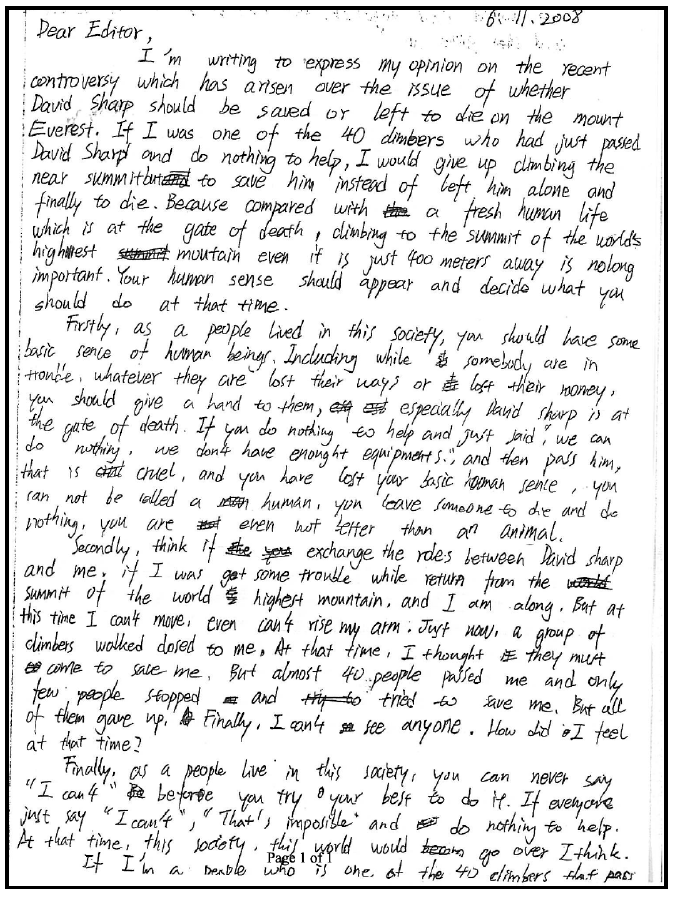 6. 11. 2008
Dear Editor,
I'm writing to express my opinion on the recent
controversy which has arisen over the issue of whether
David Sharp should be saved or left to die on the mount
Everest. If I was one of the 40 climbers who had just passed
David Sharp and do nothing to help, I would give up climbing the
near summit to save him instead of left him alone and
finally to die. Because compared with a fresh human life
which is at the gate of death, climbing to the summit of the world's
highest moutain even if is just 400 meters away is nolong
important. Your human sense should appear and decide what you
should do at that time.
Firstly, as a people lived in this society, you should have some
basic sence of human beings. Including while somebody are in
whatever they are lost their ways or lost their money,
you should give a hand to them, especially David sharp is at
the gate of death. If you do nothing to help and just said, "we can
do nothing, we don't have enought equipments.", and then pass him,
that is cruel, and you have lost your basic human sence, you
can not be called a human, you leave someone to die and do
nothing, you are even not better than an animal.
Secondly, think if exchange the roles between David sharp
and me, if I was got some trouble while return from the
summit of the world highest mountain, and I am along. But at
this time I can't move, even can't rise my arm. Just now, a group of
climbers walked closed to me. At that time, I thought they must
come to save me. But almost 40 people passed me and only
few people stopped and tried to save me. But all
of them gave up. Finally, I can't see anyone. How did I feel
at that time?
Finally, as a people live in this society, you can never say
"I can't" before you try your best to do it. If everyone
just say "I can't", "That's imposible" and do nothing to help.
At that time, this society, this world would go over I think.
Page 1 of 1
If I'm a people who is one of the 40 climbers that pass